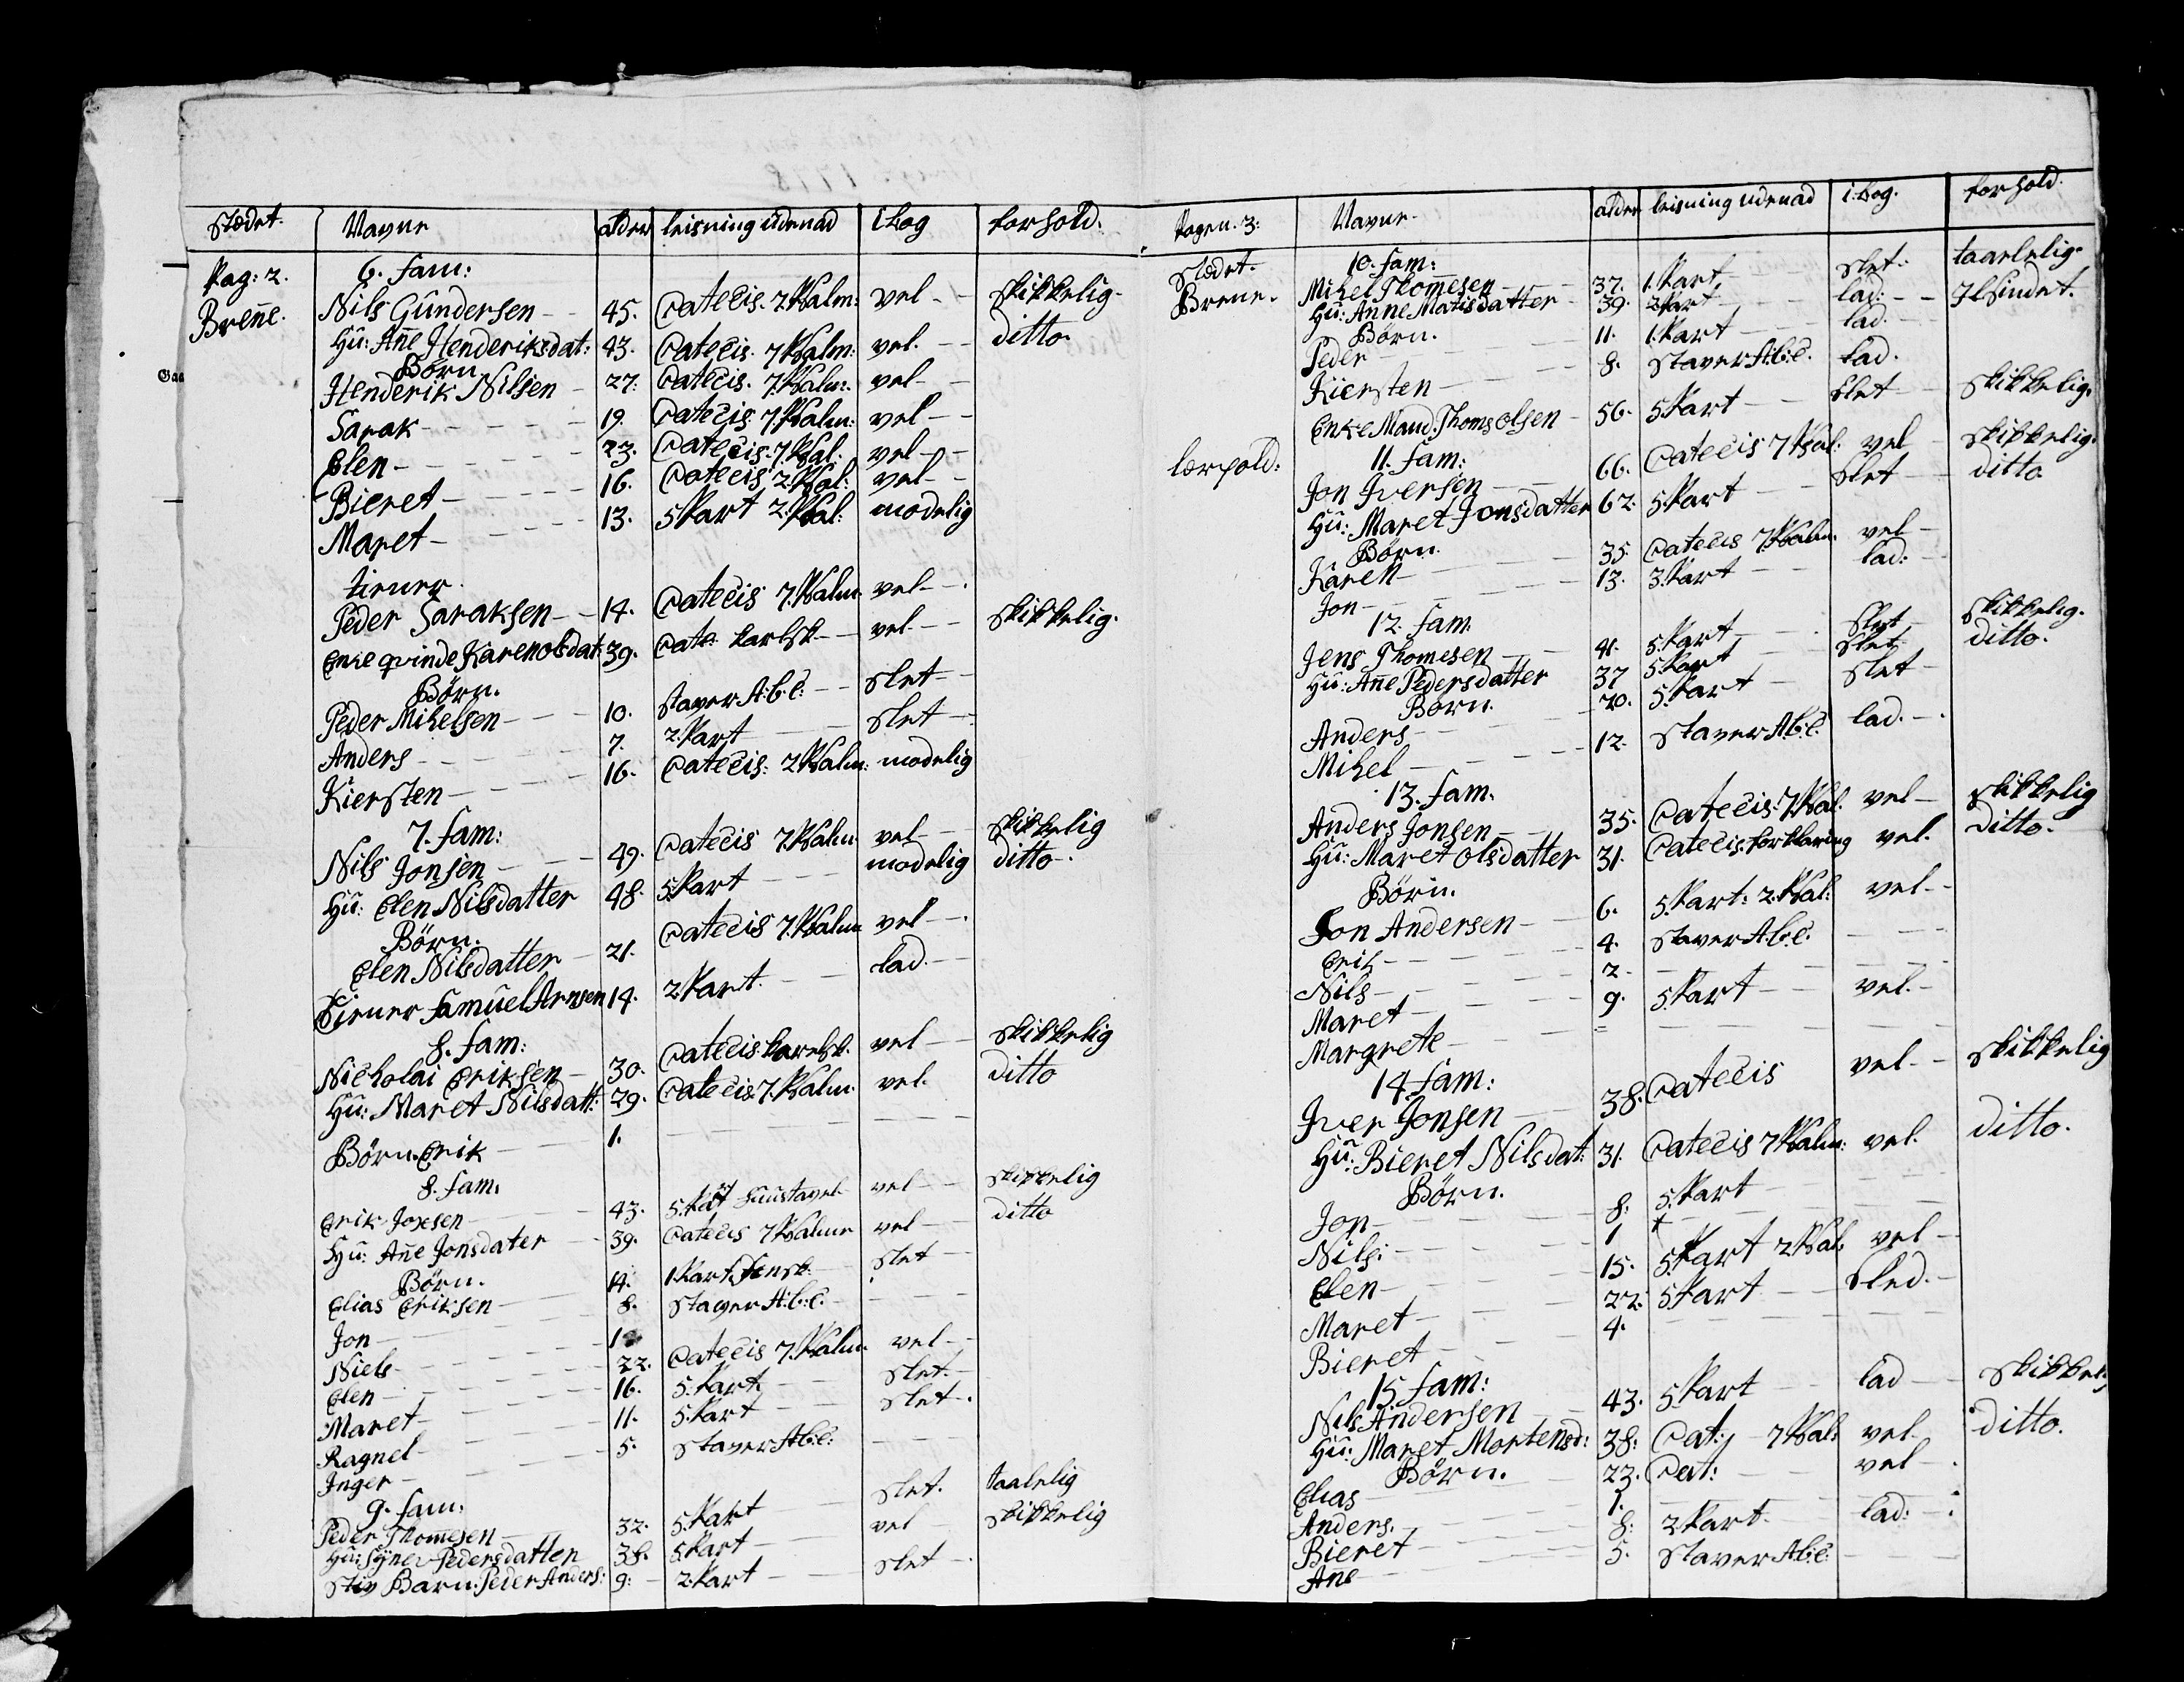 Stædet. Navne alder leisning udenad i bog forhold.
Pag: 2. 6. fam:
Brene. Nils Gundersen 45. Catecis. 7. Psalm: vel skikkelig.
Hu: Ane Henderiksdat: 43. Catecis. 7 Psalm: vel. ditto.
Börn
Henderik Nilsen 27: Catecis. 7. Psalm. vel
Sarak 19. Catecis. 7. Psalm: vel
Elen 23. Catecis. 7 Psal: vel
Bieret 16. Catecis 2. Psal: vel
Maret 13. 5 Part 2. Psal: modelig
tiener.
Peder Saraksen 14. Catecis 7. Psalm. vel
Enke qvinde Karen olsdat: 39. Cate: vel skikkelig.
Börn.
Peder Mikelsen 10. staver A:b:c: slet
Anders 7. 2. Part slet
Kiersten 16. Catecis: 2 Psalm: modelig
7. fam:
Nils Jonsen 49. Catecis 7. Psalm vel skikkelig
Hu: Elen Nilsdatter 48. 5. Part modelig ditto.
Börn.
Elen Nilsdatter 21. Catecis 7. Psalm vel
Tiener Samuel Arnsen 14. 2. Part. lad.
8. fam:
Nicholai Eriksen 30. Catecis. vel skikkelig
Hu: Maret Nilsdatt: 29. Catecis 7. Psalm. vel. ditto
Börn. Erik 1.
8. fam.
Erik Josesen 43. 5. Part vel skikkelig
Hu: Ane Jonsdater 39. Catecis 7 Psalmer vel ditto
Börn.
Elias Eriksen 14. 1. Part slet
Jon 8. Staver A:b:c.
Niels 1
Elen 22. Catecis 7. Psalm. vel
Maret 16. 5. Part slet.
Ragnel 11. 5. Part slet.
Inger 5. Staver A:b:c:
9. fam:
Peder Thomesen 32. 5. Part slet. taalelig
Hu: Syne Pedersdatter 38. 5. Part vel skikkelig
Stiv Barn: Peder Anders: 9: 2. Part slet
Pagen. 3: Navne. alder leisning udenad i. bog. forhold.
Stædet. 10. fam:
Brene. Mikel Thomesen 37. 1. Part slet. taarlelig.
Hu: Anne Matisdatter 39. 2 Part lad: Ilsindet.
Börn.
Peder 11. 1. Part lad.
Kiersten 8. staver A:b:c. lad.
Enke Mand. Thoms olsen 56. 5 Part slet skikkelig.
Lerpold: 11. fam:
Jon Iversen 66. Catecis 7 Psal: vel skikkelig.
Hu: Maret Jonsdatter 62. 5. Part slet ditto
Börn.
Karen 35. Catecis 7 Psalm. vel
Jon 13. 3. Part lad:
12. fam.
Jens Thomesen 41. 5. Part slet skikkelig.
Hu: Ane Pedersdatter 37 5 Part slet ditto.
Börn.
Anders 20. 5. Part slet
Mikel 12. Staver A.b:c: lad.
13. fam.
Anders Jonsen 35. Catecis: 7 Psal. vel skikkelig
Hu: Maret olsdatter 31. Catecis forklaring vel. ditto.
Börn.
Jon Andersen 6. 5. Part: 2. Psal: vel
Erik 4. staver A:b:c.
Nils 2
Maret 9. 5 Part vel.
Margrete =
14. fam:
Iver Jonsen 38. Catecis vel skikkelig
Hu: Bieret Nilsdat: 31. Catecis 7 Psalm: vel. ditto.
Börn.
Jon 8. 5. Part
Nils: 1
Elen 15. 5. Part 2 Psal. vel
Maret 22. 5. Part sled.
Bieret 4.
15. fam:
Nils Andersen 43. 5. Part lad skikkel:
Hu: Maret Mortensd: 38: Cat: 7 Psal: vel ditto.
Börn.
Elias 23. Cat: vel
Anders. 1.
Bieret 8: 2. Part. lad:
Ane 5. Staver A:b:c: